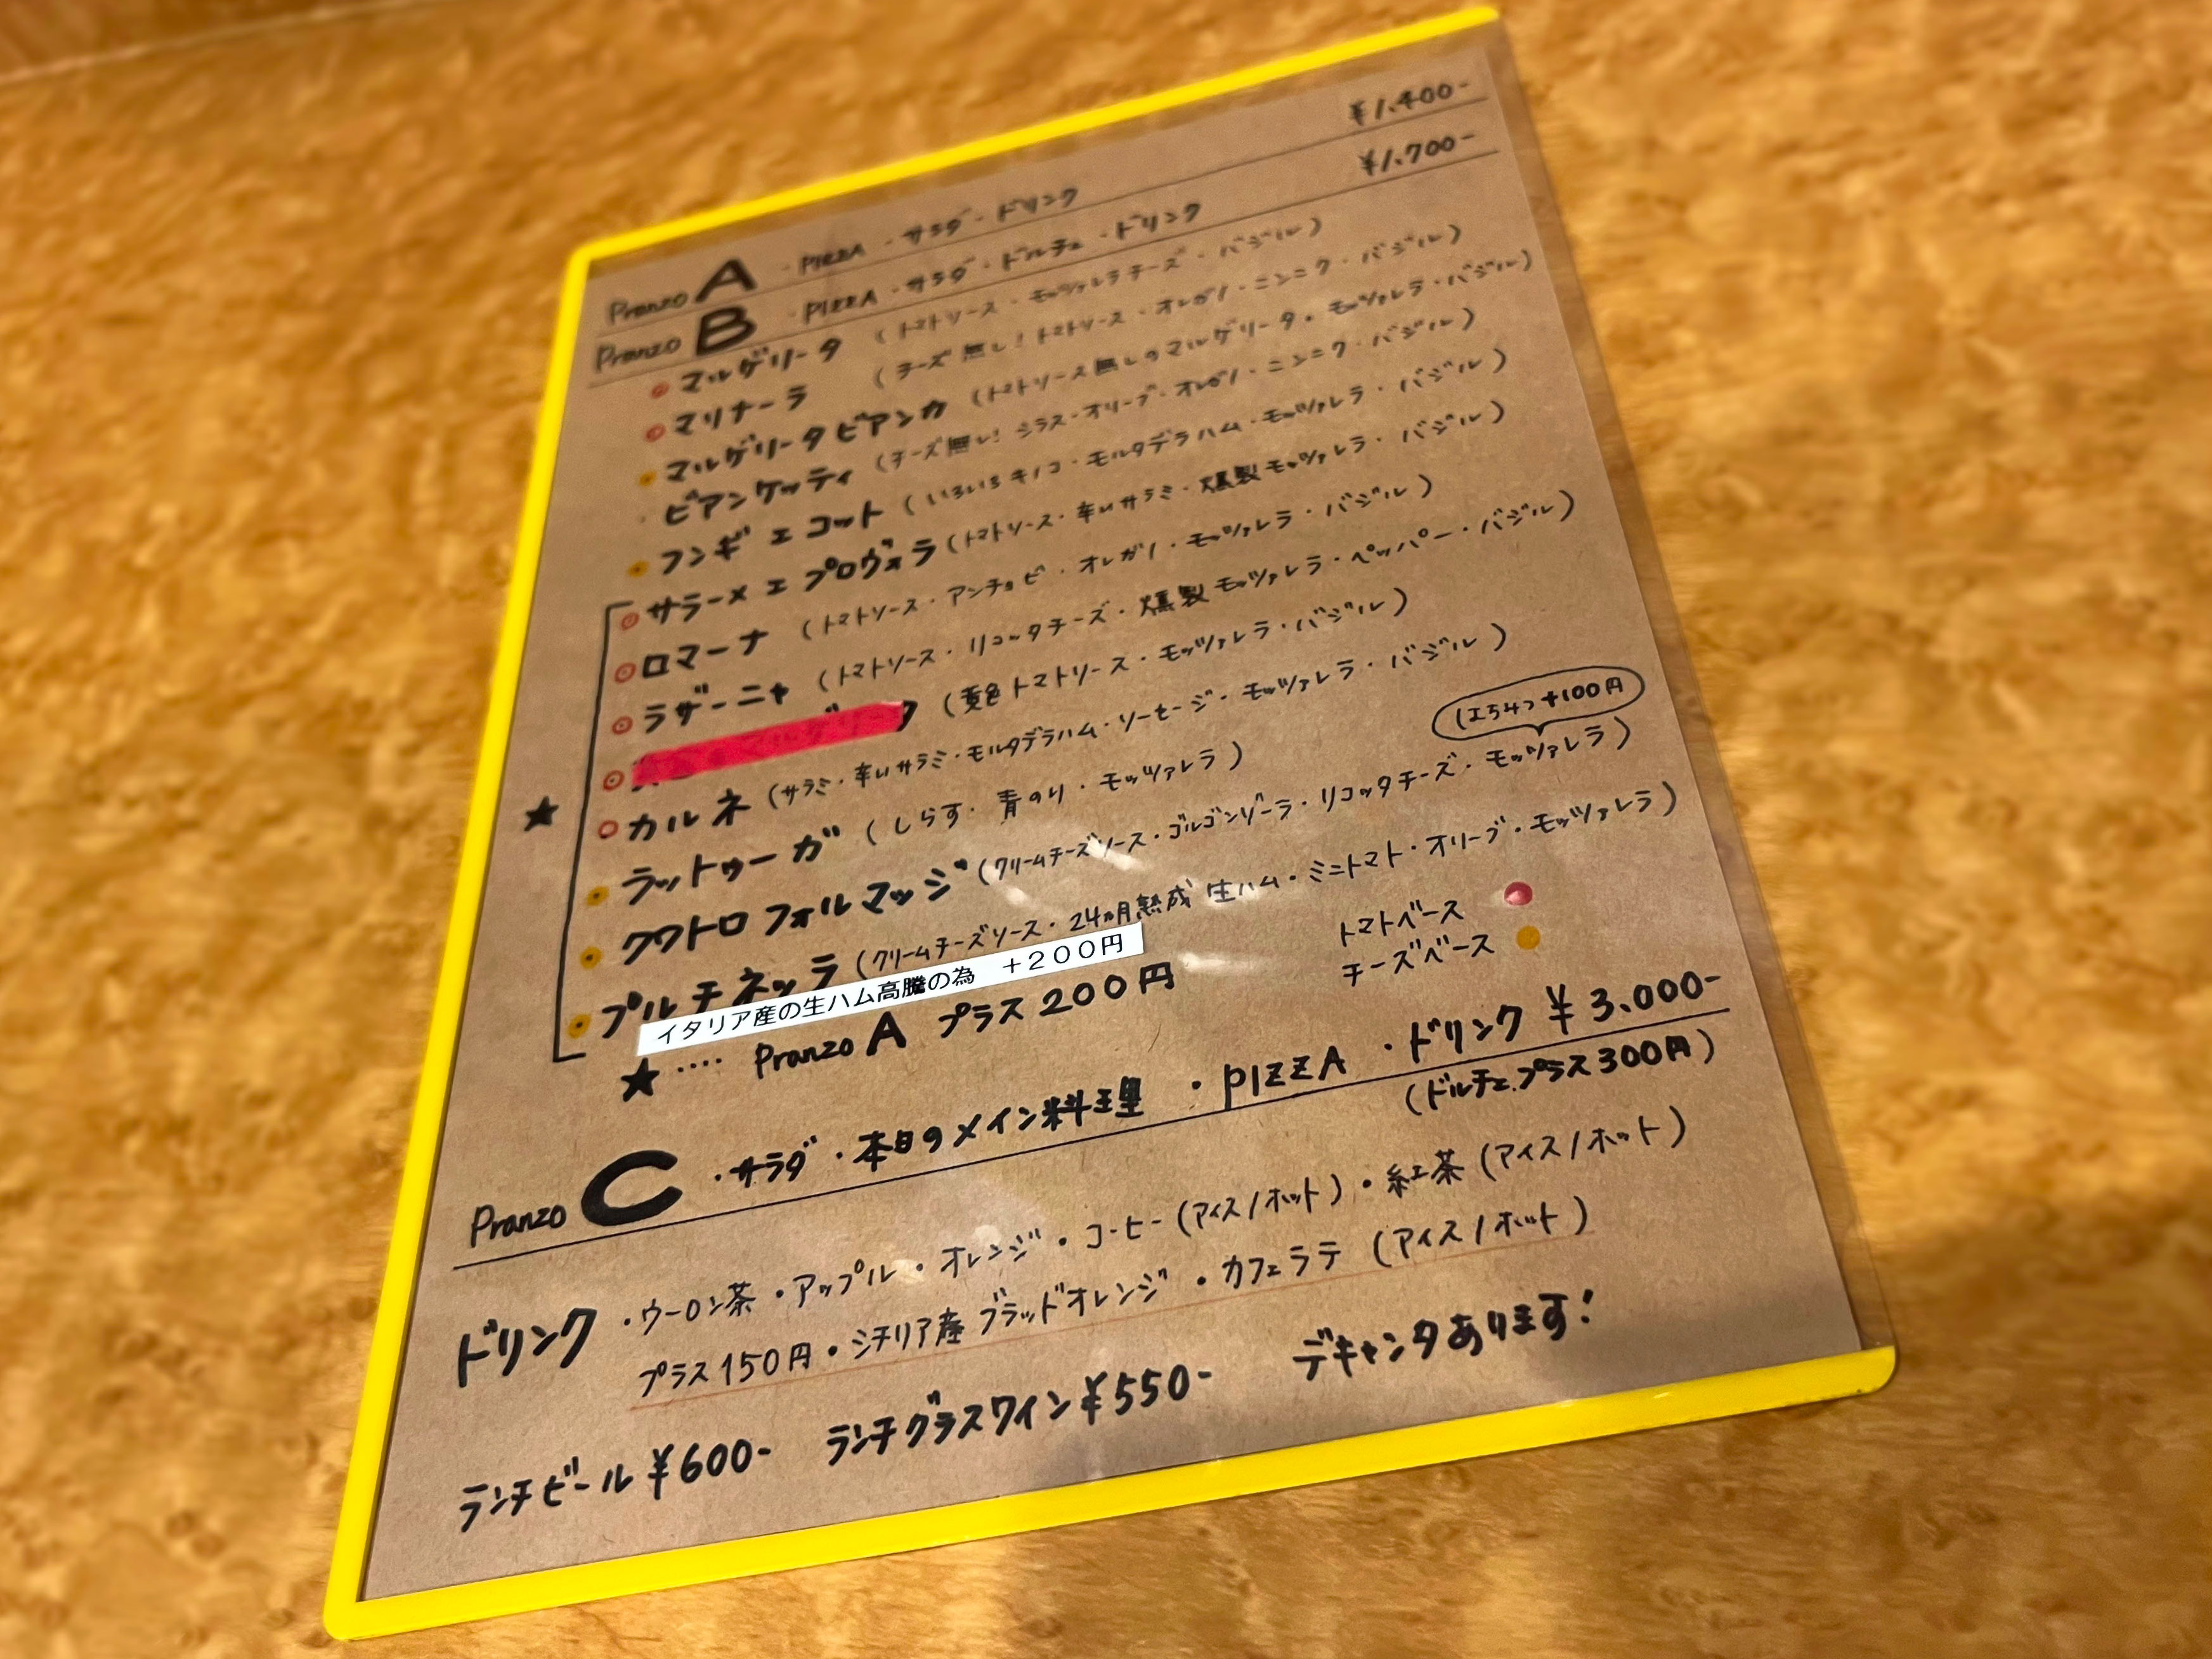 Pranzo A ・PIZZA ・サラダ・ドリンク ¥1,400-
Pranzo B ・PIZZA ・サラダ・ドルチェ・ドリンク ¥1,700-
マルゲリータ (トマトソース・モッツァレラチーズ・バジル)
マリナーラ (チーズ無し!トマトソース・オレガノ・ニンニク・バジル)
マルゲリータビアンカ (トマトソース無しのマルゲリータ・モッツァレラ・バジル)
ビアンケッティ (チーズ無し!シラス・オリーブ・オレガノ・ニンニク・バジル)
フンギ エ コット (いろいろキノコ・モルタデラハム・モッツァレラ・バジル)
サラーメ エ プロヴォラ (トマトソース・辛いサラミ・燻製モッツァレラ・バジル)
ロマーナ (トマトソース・アンチョビ・オレガノ・モッツァレラ・バジル)
ラザーニャ (トマトソース・リコッタチーズ・燻製モッツァレラ・ペッパー・バジル)
(黄色トマトソース・モッツァレラ・バジル)
★ カルネ (サラミ・辛いサラミ・モルタデラハム・ソーセージ・モッツァレラ・バジル)
ラットゥーガ (しらす・青のり・モッツァレラ)
(はちみつ+100円)
クワトロフォルマッジ (クリームチーズソース・ゴルゴンゾーラ・リコッタチーズ・モッツァレラ)
プルチネッラ (クリームチーズソース・24ヵ月熟成 生ハム・ミニトマト・オリーブ・モッツァレラ)
イタリア産の生ハム高騰の為 +200円
★‥‥ Pranzo A プラス200円
トマトベース
チーズベース
Pranzo C ・サラダ・本日のメイン料理 ・PIZZA ・ドリンク ¥3,000-
(ドルチェ プラス300円)
ドリンク ・ウーロン茶・アップル・オレンジ・コーヒー(アイス/ホット)・紅茶(アイス/ホット)
プラス150円・シチリア産 ブラッドオレンジ・カフェラテ (アイス/ホット)
ランチビール¥600- ランチグラスワイン¥550- デキャンタあります!